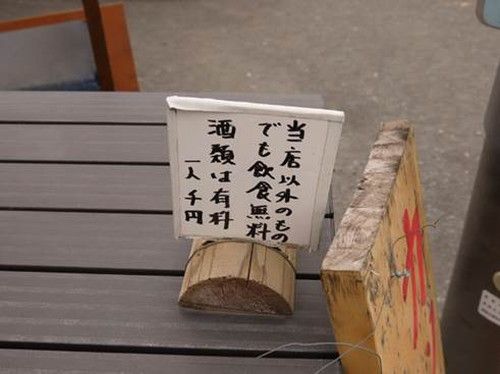 当店以外のもの
でも飲食無料
酒類は有料
一人千円